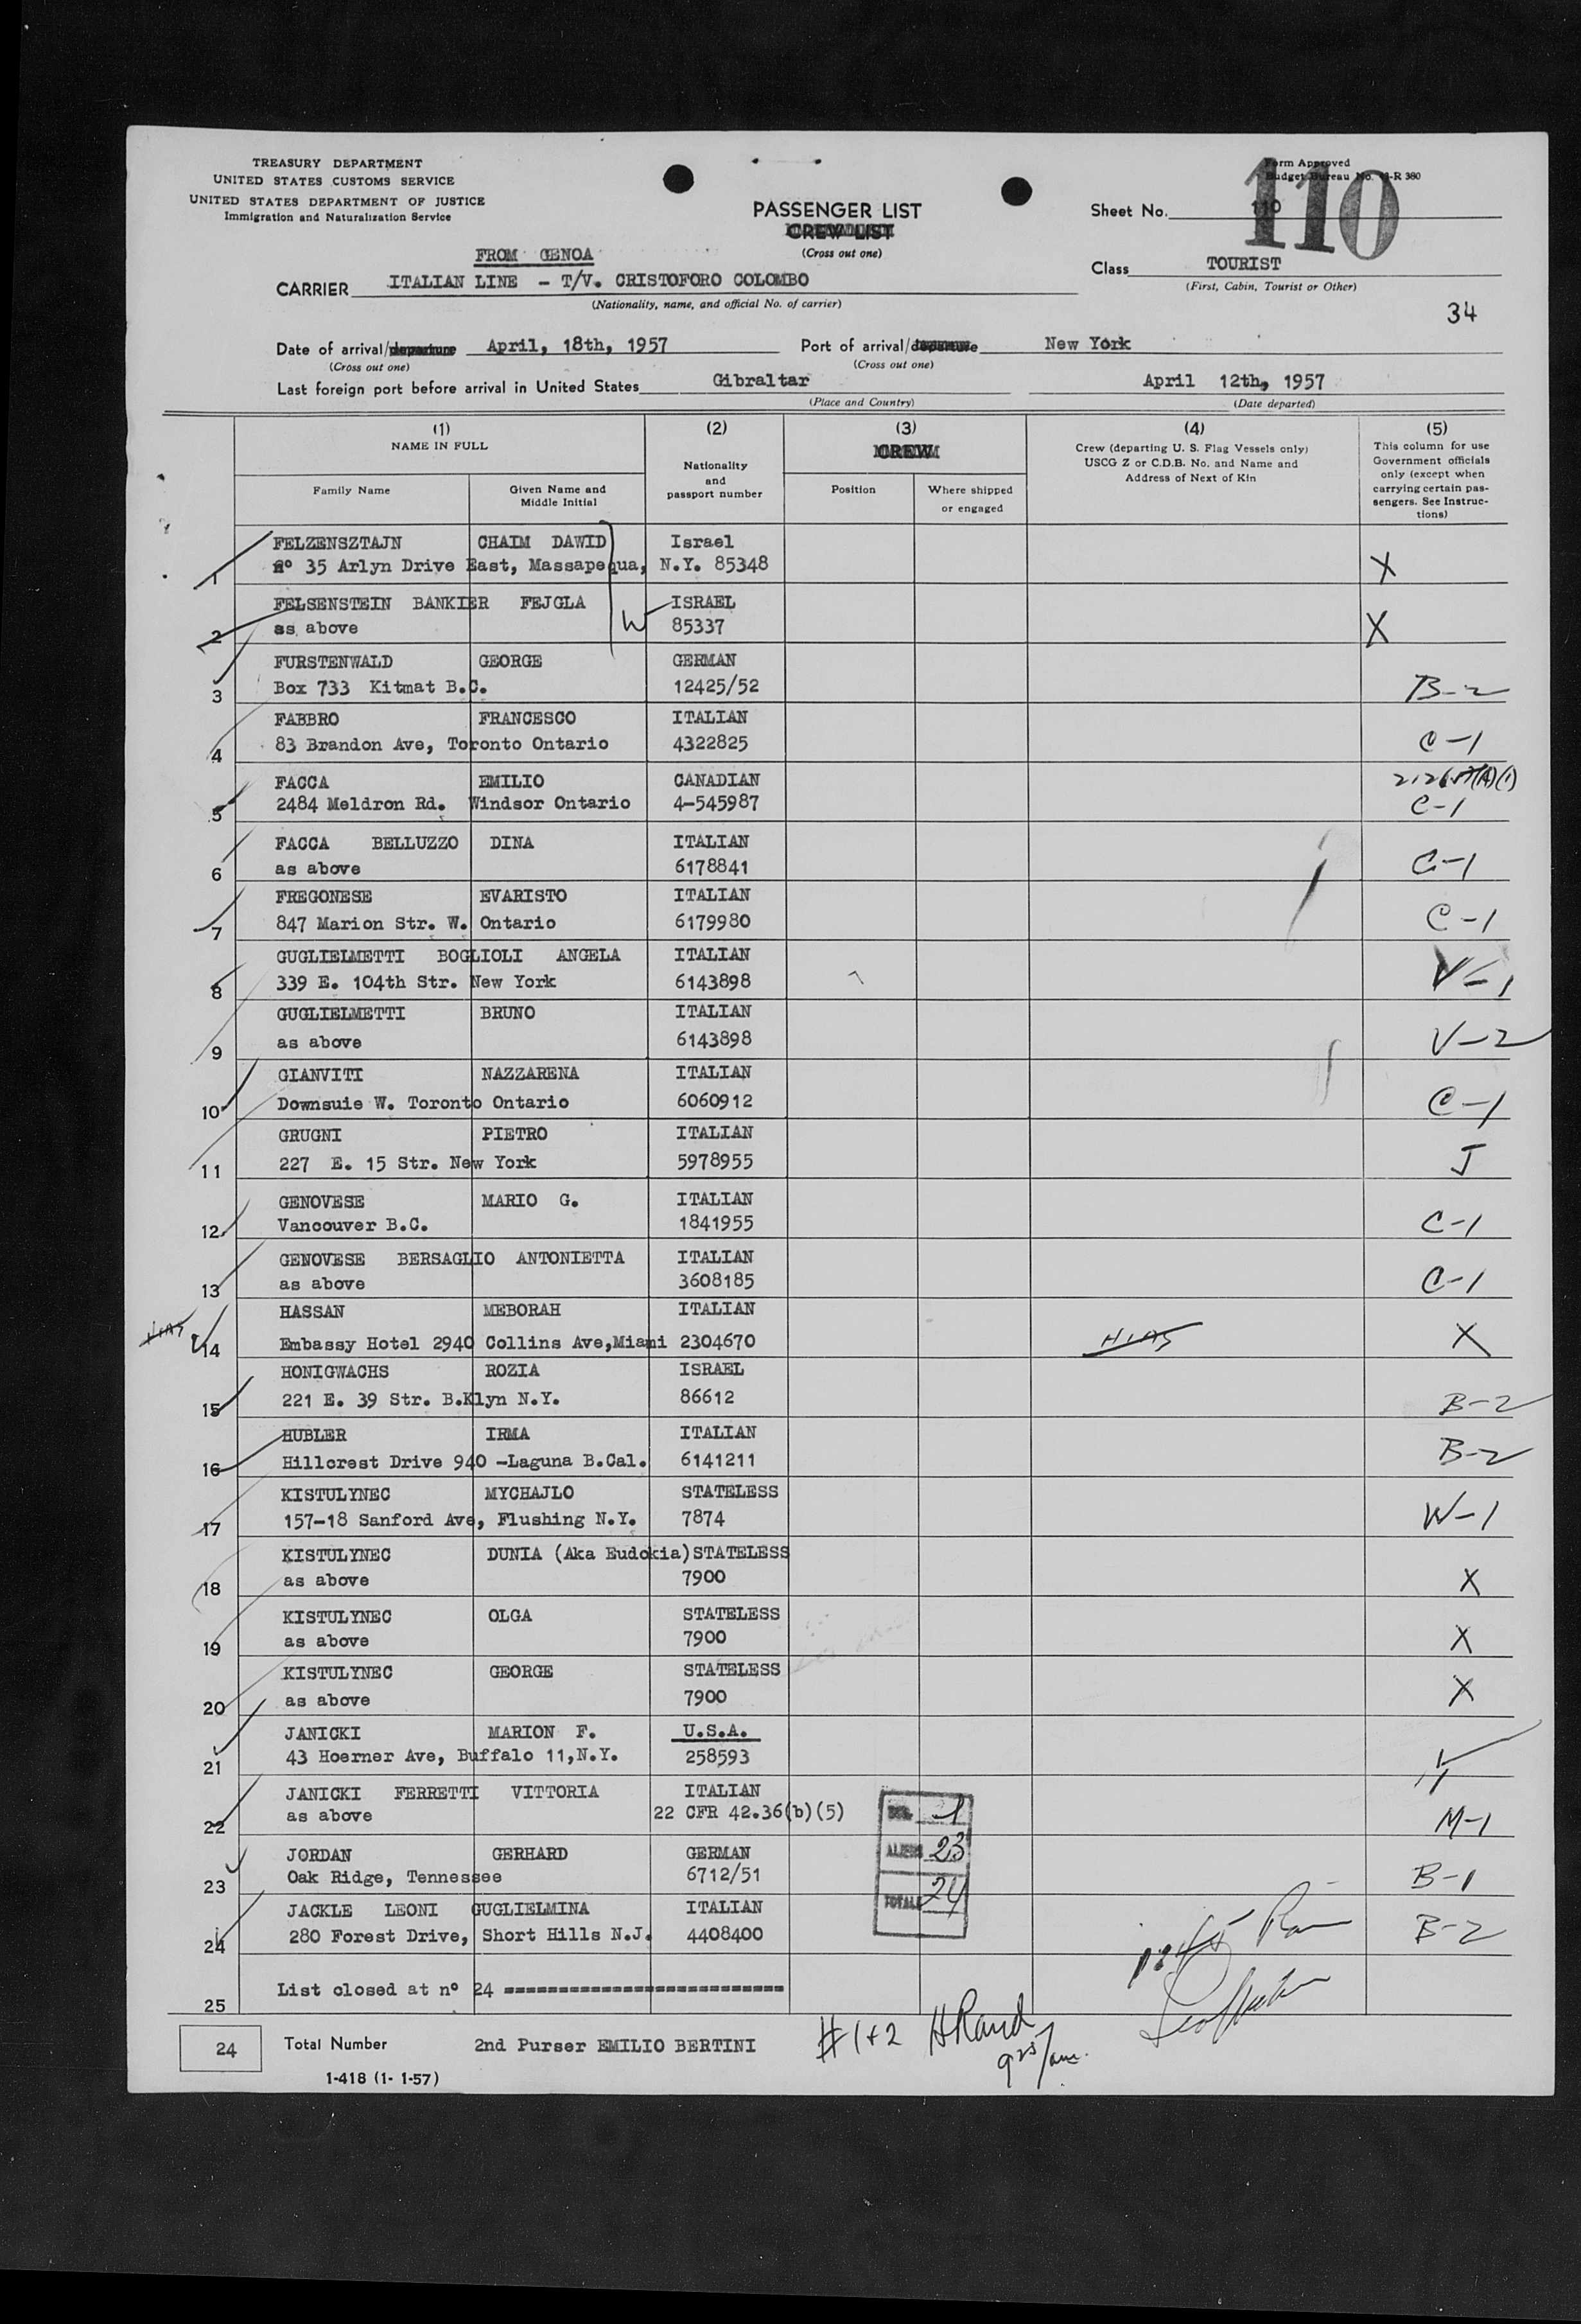 TREASURY DEPARTMENT
UNITED STATES CUSTOMS SERVICE
UNITED STATES DEPARTMENT OF JUSTICE
Immigration and Naturalization Service
PASSENGER LIST
CREW LIST
(Cross out one)
Form Approved
Budget Bureau No. -R 380
110
Sheet No. 110
FROM GENOA
CARRIER ITALIAN LINE - T/V. CRISTOFORO COLOMBO
(Nationality, name, and official No. of carrier)
Class TOURIST
(First, Cabin, Tourist or Other)
34
Date of arrival/departure April, 18th, 1957 Port of arrival/departure New York
(Cross out one) (Cross out one)
Last foreign port before arrival in United States Gibraltar April 12th, 1957
(Place and Country) (Date departed)
(1) (2) (3) (4) (5)
NAME IN FULL
Family Name
Given Name and Middle Initial
Nationality and passport number
CREW
Position
Where shipped or engaged
Crew (departing U. S. Flag Vessels only)
USCG Z or C.D.B. No. and Name and
Address of Next of Kin
This column for use
Government officials
only (except when
carrying certain pas-
sengers. See Instruc-
tions)
FELZENSZTAJN CHAIM DAWID Israel
1 nº 35 Arlyn Drive East, Massapequa, N.Y. 85348 X
FELSENSTEIN BANKIER FEJGLA ISRAEL
2 as above W 85337 X
FURSTENWALD GEORGE GERMAN
3 Box 733 Kitmat B.C. 12425/52 B-2
FABBRO FRANCESCO ITALIAN
4 83 Brandon Ave, Toronto Ontario 4322825 C-1
FACCA EMILIO CANADIAN
5 2484 Meldron Rd. Windsor Ontario 4-545987 C-1
FACCA BELLUZZO DINA ITALIAN
6 as above 6178841 C-1
FREGONESE EVARISTO ITALIAN
7 847 Marion Str. W. Ontario 6179980 C-1
GUGLIELMETTI BOGLIOLI ANGELA ITALIAN
8 339 E. 104th Str. New York 6143898 V-1
GUGLIELMETTI BRUNO ITALIAN
9 as above 6143898 V-2
GIANVITI NAZZARENA ITALIAN
10 Downsuie W. Toronto Ontario 6060912 C-1
GRUGNI PIETRO ITALIAN
11 227 E. 15 Str. New York 5978955 J
GENOVESE MARIO G. ITALIAN
12 Vancouver B.C. 1841955 C-1
GENOVESE BERSAGLIO ANTONIETTA ITALIAN
13 as above 3608185 C-1
HASSAN MEBORAH ITALIAN
HIAS 14 Embassy Hotel 2940 Collins Ave,Miami 2304670 HIAS X
HONIGWACHS ROZIA ISRAEL
15 221 E. 39 Str. B.Klyn N.Y. 86612 B-2
HUBLER IRMA ITALIAN
16 Hillcrest Drive 940 -Laguna B.Cal. 6141211 B-2
KISTULYNEC MYCHAJLO STATELESS
17 157-18 Sanford Ave, Flushing N.Y. 7874 W-1
KISTULYNEC DUNIA (Aka Eudokia) STATELESS
18 as above 7900 X
KISTULYNEC OLGA STATELESS
19 as above 7900 X
KISTULYNEC GEORGE STATELESS
20 as above 7900 X
JANICKI MARION F. U.S.A.
21 43 Hoerner Ave, Buffalo 11,N.Y. 258593
JANICKI FERRETTI VITTORIA ITALIAN
22 as above 22 CFR 42.36(b)(5) M-1
JORDAN GERHARD GERMAN
23 Oak Ridge, Tennessee 6712/51 B-1
JACKLE LEONI GUGLIELMINA ITALIAN
24 280 Forest Drive, Short Hills N.J. 4408400 B-2
1
ALIENS 23
TOTALS 24
25 List closed at nº 24 ------------------------
24 Total Number 2nd Purser EMILIO BERTINI #1+2 HRand
925/am.
1-418 (1- 1-57)